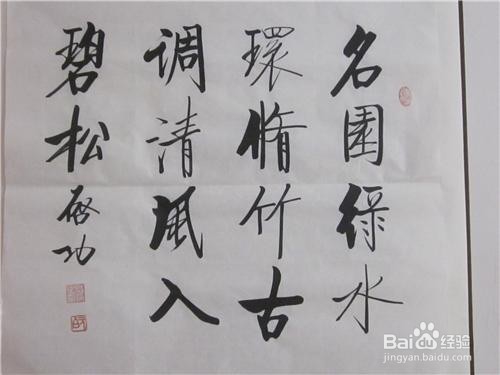 名園綠水
環脩竹古
调清風入
碧松 啓功
Baidu 经验
jingyan.baidu.com